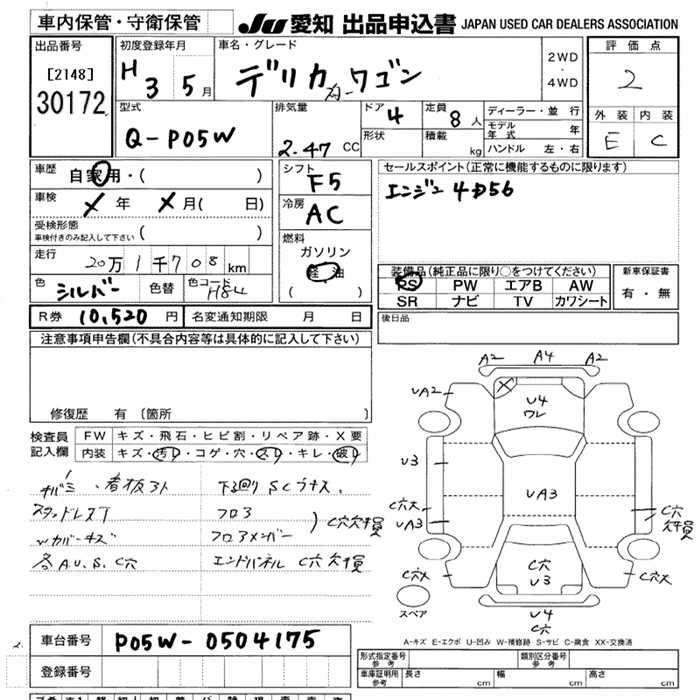 車内保管・守衛保管
JU 愛知 出品申込書 JAPAN USED CAR DEALERS ASSOCIATION
出品番号
[2148]
30172
初度登録年月
H 3 5 月
車名・グレード
デリカ ワゴン
2WD
・
4WD
評価点
2
外装 内装
E C
型式
Q-P05W
排気量
2.47 CC
ドア 4
形状
定員 8 人
積載 kg
ディーラー・並行
モデル年式 年
ハンドル 左・右
車歴 自家用・( )
車検 X 年 X 月( 日)
受検形態
車検付きのみ記入して下さい ( )
走行
20万1千708 km
色 シルバー 色替 色コード H84
シフト
F5
冷房
AC
燃料
ガソリン
軽油
( )
セールスポイント(正常に機能するものに限ります)
エンジン 4D56
装備品(純正品に限り○をつけてください)
PS PW エアB AW
SR ナビ TV カワシート
新車保証書
有・無
R券 10,520 円 名変通知期限 月 日
後日品
注意事項申告欄(不具合内容等は具体的に記入して下さい)
修復歴 有 〔箇所 〕
検査員記入欄
FW キズ・飛石・ヒビ割・リペア跡・X要
内装 キズ・汚れ・コゲ・穴・スレ・キレ・破れ
看板アト 下回り SC
フロア
C穴欠損
各A.U.S.C穴 エンドパネル C穴 欠損
A2 A4 A2
UA2
U4
ワレ
U3
UA3
C穴大
UA3
C穴
欠損
C穴大
C穴
U3
C穴大
スペア
U4
C穴
A-キズ E-エクボ U-凹み W-補修跡 S-サビ C-腐食 XX-交換済
車台番号 P05W-0504175
登録番号
形式指定番号 参考
類別区分番号 参考
車庫証明用 参考 長さ cm 幅 cm 高さ cm